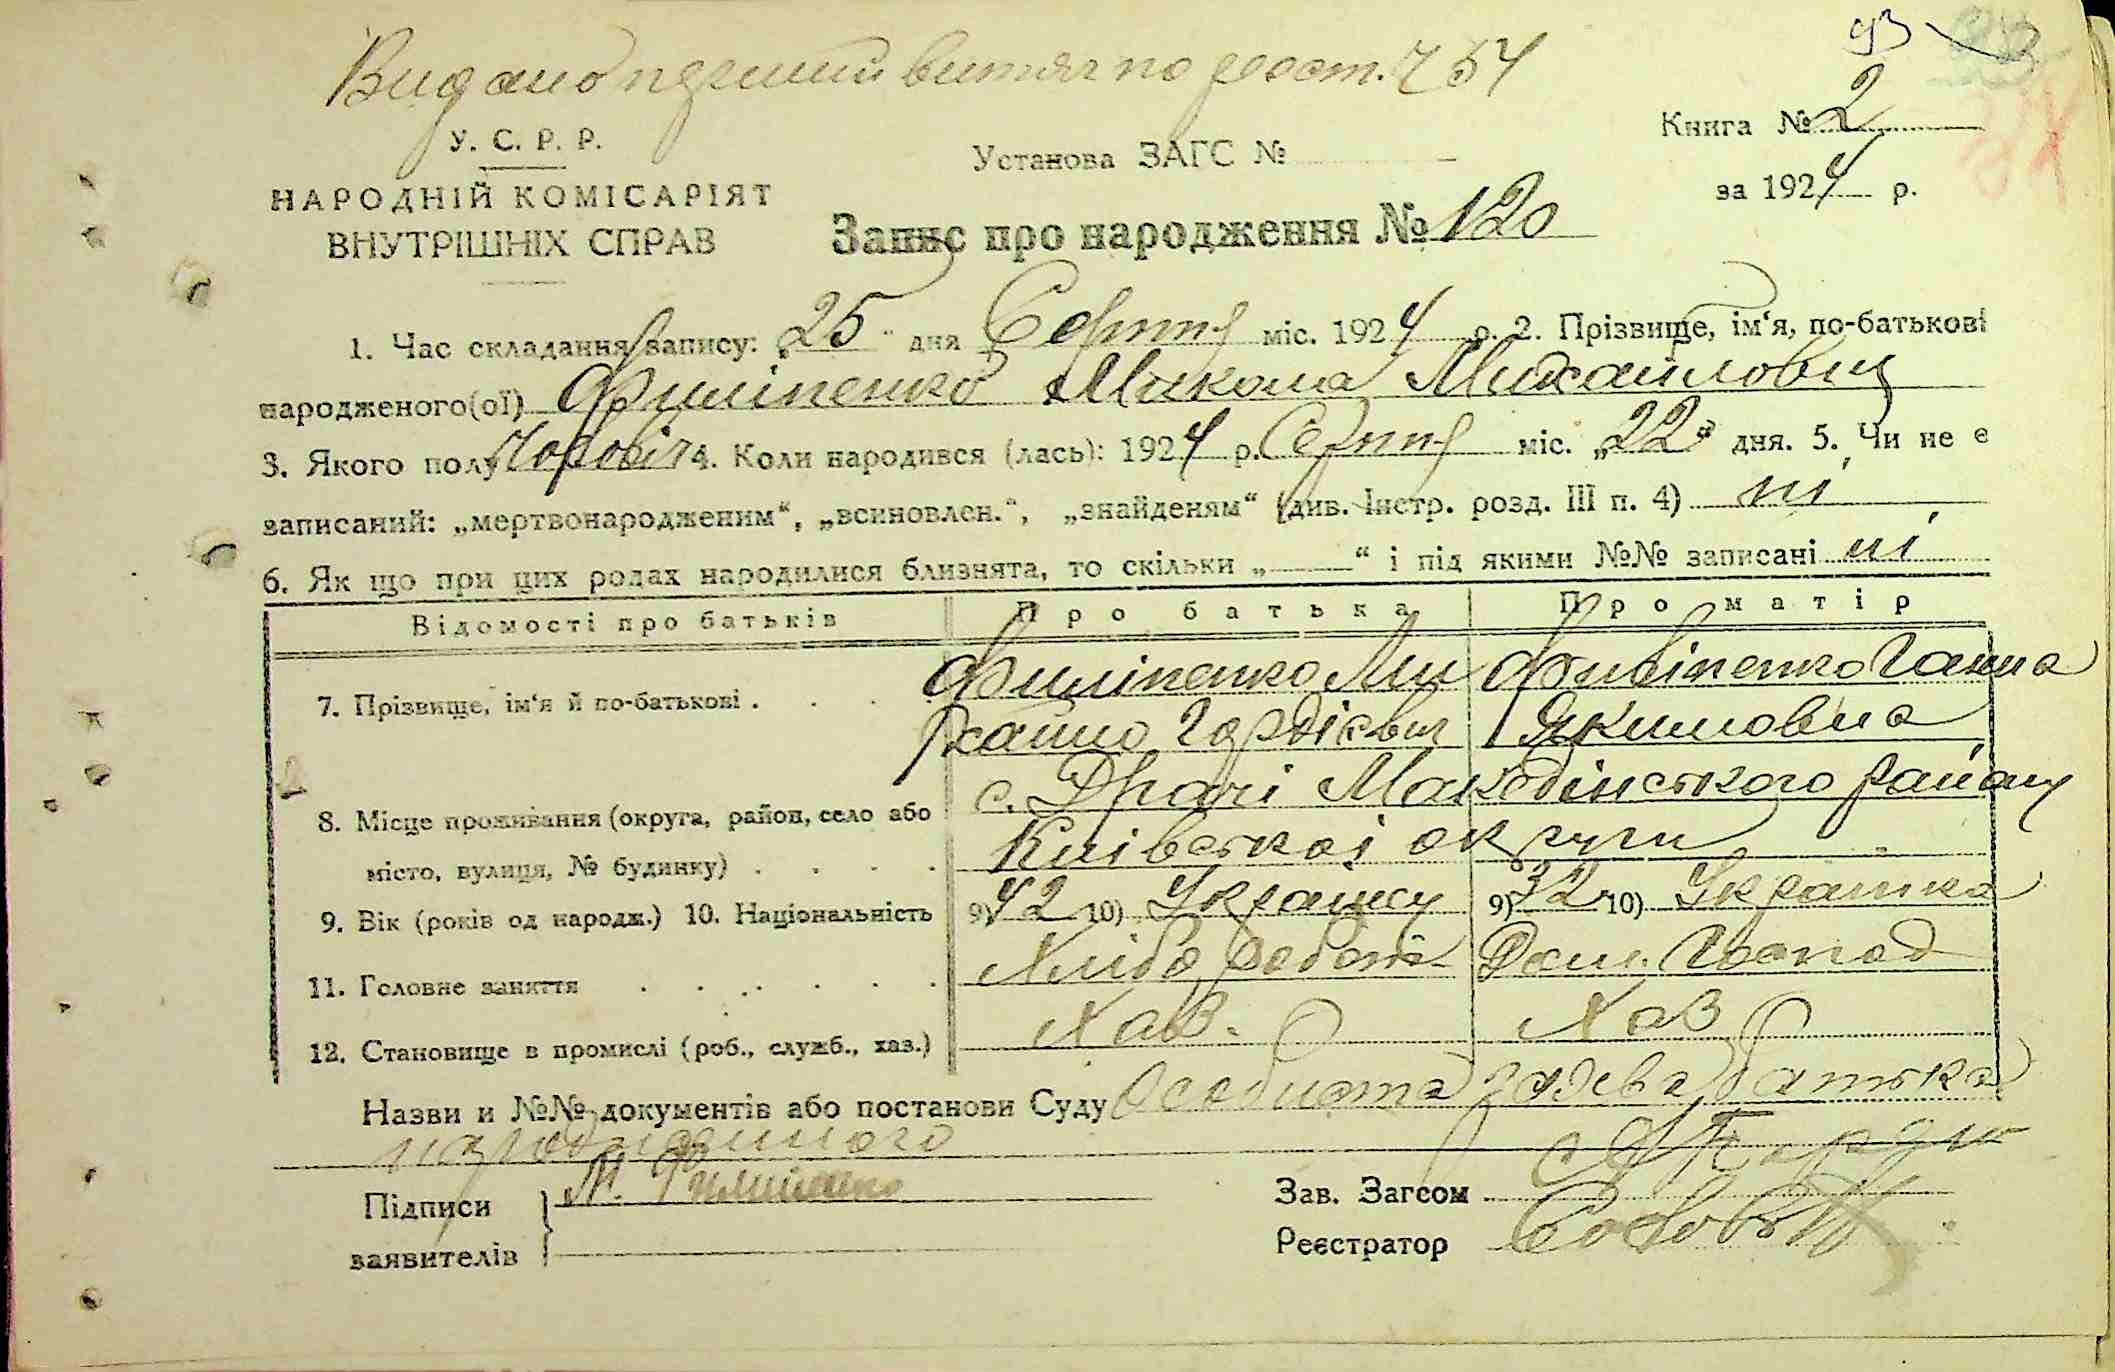 93
Видано перший витяг по реест. 754
У. С. Р. Р.
НАРОДНІЙ КОМІСАРІЯТ
ВНУТРІШНІХ СПРАВ
Установа ЗАГС №
Книга № 2
за 1924 р.
Запис про народження № 120
1. Час складання запису: „25“ дня Серпня міс. 1924 р. 2. Прізвище, ім‘я, по-батькові
народженого(ої) Филіпенко Микола Михайлович
3. Якого полу Чоловіч 4. Коли народився (лась): 1924 р. Серпня міс. „22“ дня. 5. Чи не є
записаний: „мертвонародженим“, „всиновлен.“, „знайденям“ (див. Інстр. розд. III п. 4) ні
6. Як що при цих родах народилися близнята, то скільки „——“ і під якими №№ записані ні
Відомості про батьків Про батька Про матір
7. Прізвище, ім‘я й по-батькові . . . Филіпенко Ми Филіпенко Ганна
хайло Гордієвич Якимовна
8. Місце проживання (округа, район, село або с. Драчі Македінського району
місто, вулиця, № будинку) . . . . Київської округи
9. Вік (років од народж.) 10. Національність 9) 42 10) Українец 9) 32 10) Українка
11. Головне заняття . . . . . . . Хлібороб Дом. Господ
12. Становище в промислі (роб., служб., хаз.) Хаз. Хаз
Назви и №№ документів або постанови Суду Особиста заява батька
народженного
Підписи М. Филипенко
заявителів
Зав. Загсом
Реєстратор